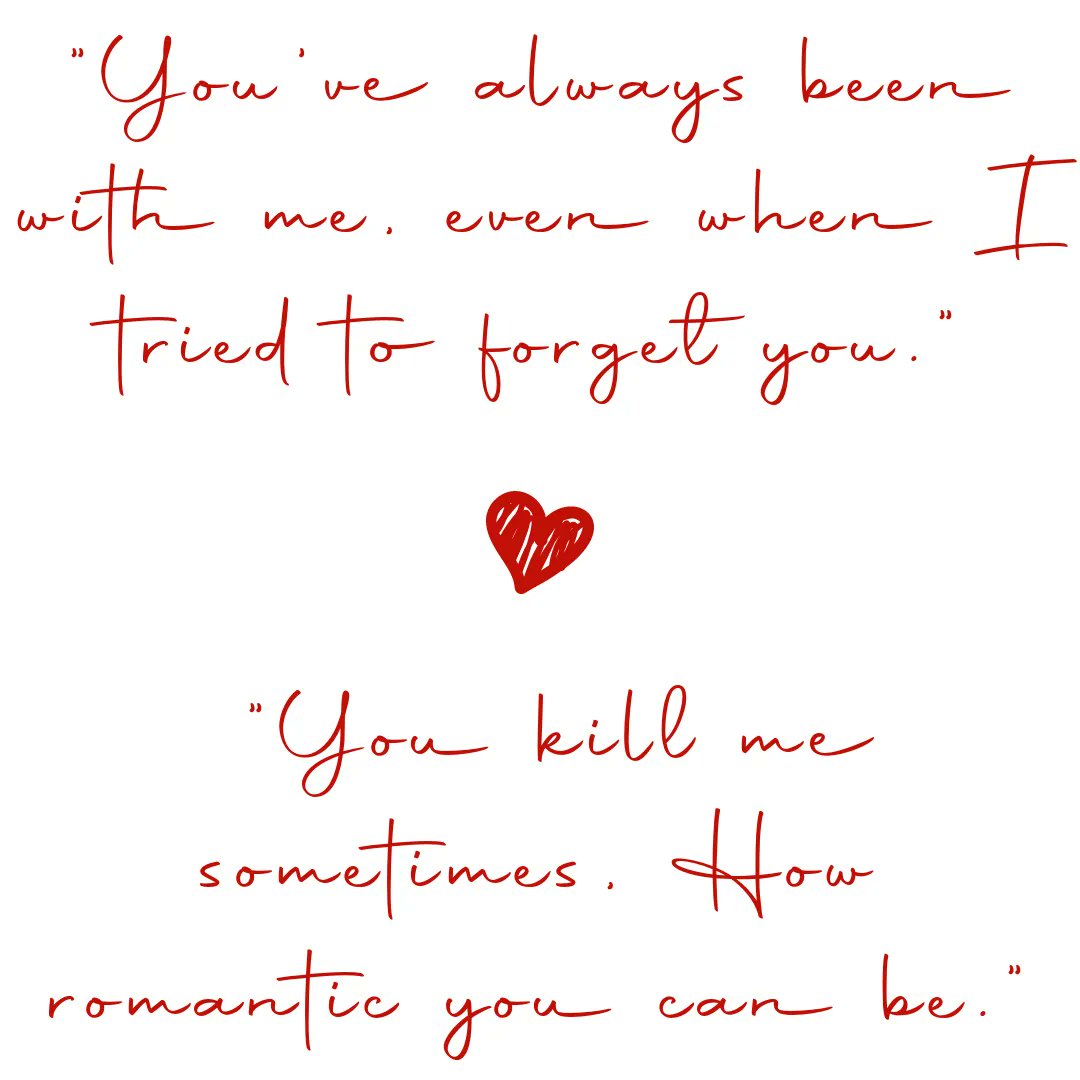 "You've always been
with me, even when I
tried to forget you."
"You kill me
sometimes. How
romantic you can be."